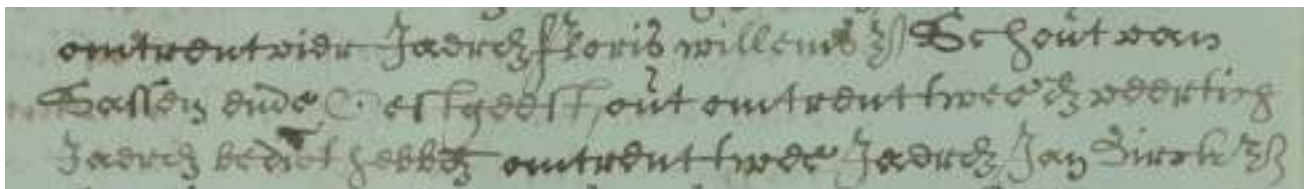 omtrent vier Jaeren floris willems z Schout van
Sassen ende Oestgeest, out omtrent twee en veertich
Jaeren bedient hebben omtrent twee Jaeren Jan Dirck z